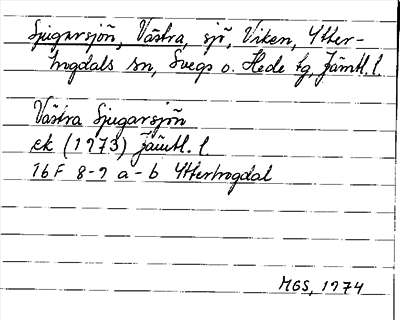 Sjugarsjön, Västra, sjö, Viken, Ytter-
hogdals sn, Svegs o. Hede tg, Jämtl. l.
Västra Sjugarsjön
ek (1973) Jämtl. l.
16F 8-9 a-b Ytterhogdal
MGS, 1974